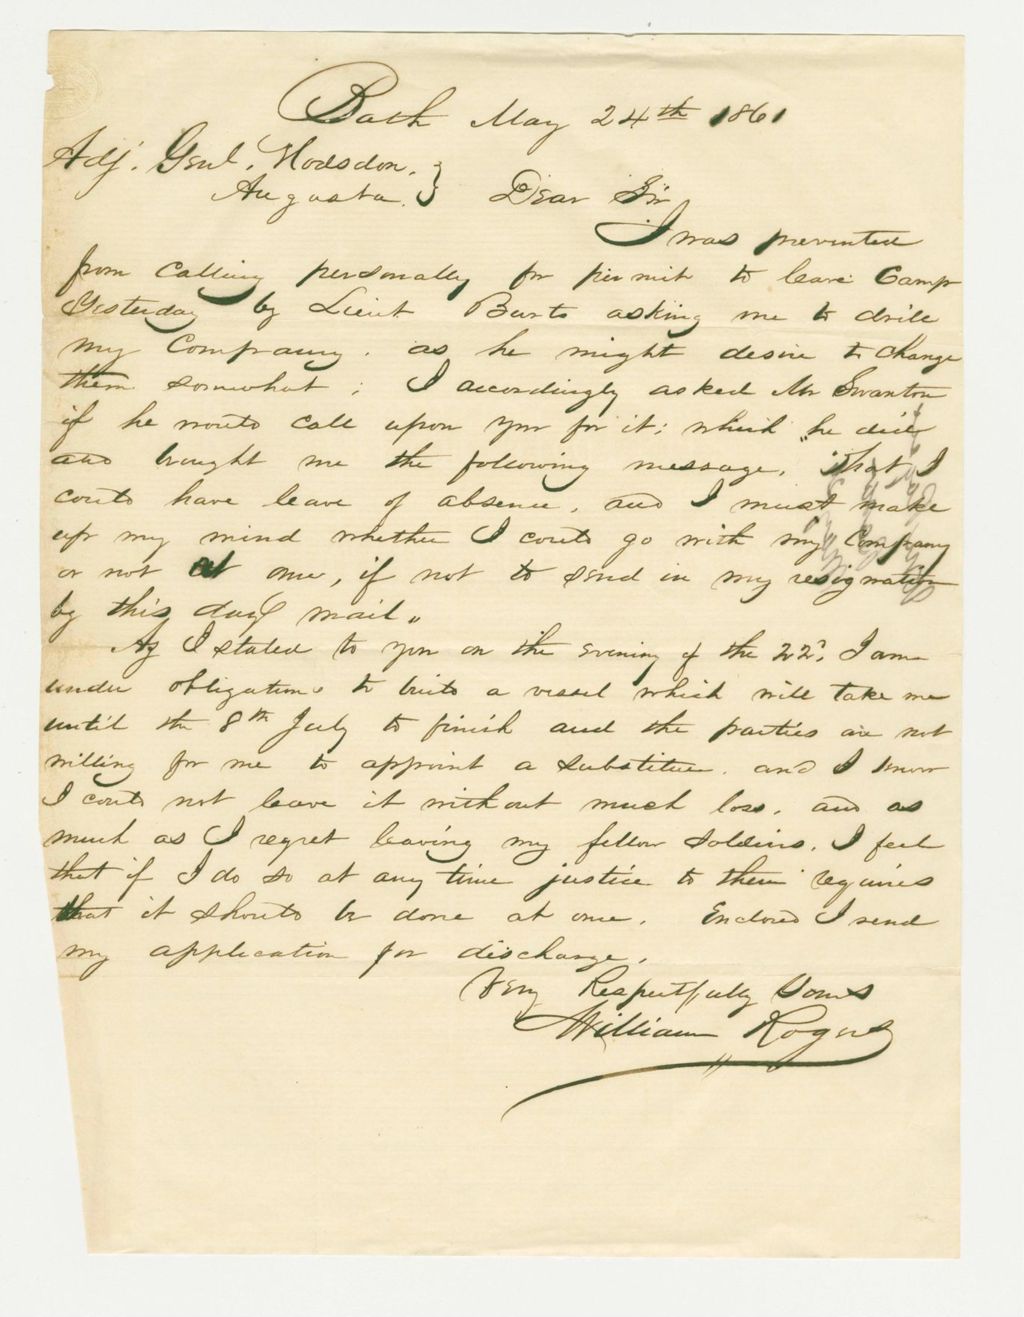 Bath May 24th 1861
Adj. Genl. Hodsdon.
Augusta. } Dear Sir
I was prevented
from calling personally for permit to leave Camp
Yesterday by Lieut Burts asking me to drill
my Company. as he might desire to change
them somewhat; I accordingly asked Mr Swanton
if he would call upon you for it; which he did
and brought me the following message. "That I
could have leave of absence, and I must make
up my mind whether I could go with my Company
or not at one, if not to send in my resignation
by this days mail"
As I stated to you on the evening of the 22d. I am
under obligations to build a vessel which will take me
until the 8th July to finish and the parties are not
willing for me to appoint a substitute. and I know
I could not leave it without much loss. and as
much as I regret leaving my fellow soldiers. I feel
that if I do so at any time justice to them requires
that it should be done at one. Enclosed I send
my application for discharge.
Very Respectfully Yours
William Rogers